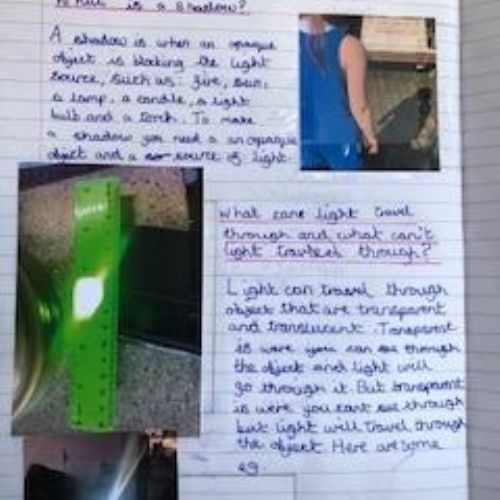 What is a Shadow?
A shadow is when an opaque
object is blocking the light
source, such as: fire, sun,
a lamp, a candle, a light
bulb and a torch. To make
a shadow you need a an opaque
object and a source of light.
What cane light travel
through and what can't
light travel through?
Light can travel through
object that are transparent
and translucent. Transparent
is were you can see through
the object and light will
go through it. But transparent
is were you cant see through
but light will travel through
the object. Here are some
eg.